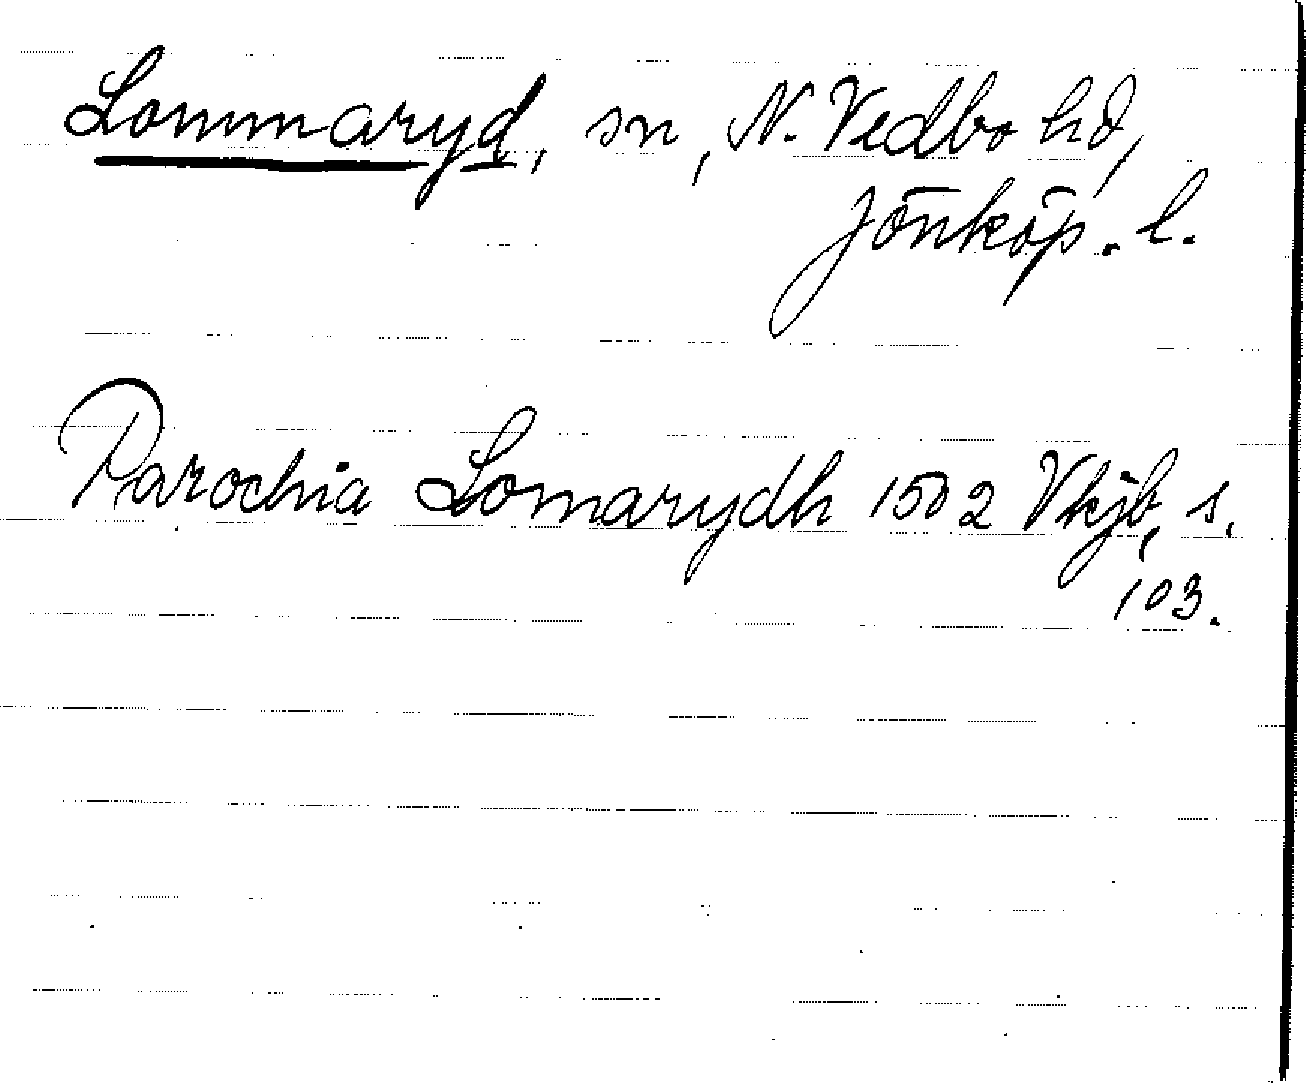 Lommaryd, sn, N. Vedbo hd,
Jönköp. l.
Parochia Lomarydh 1502 Vkjb, s.
103.